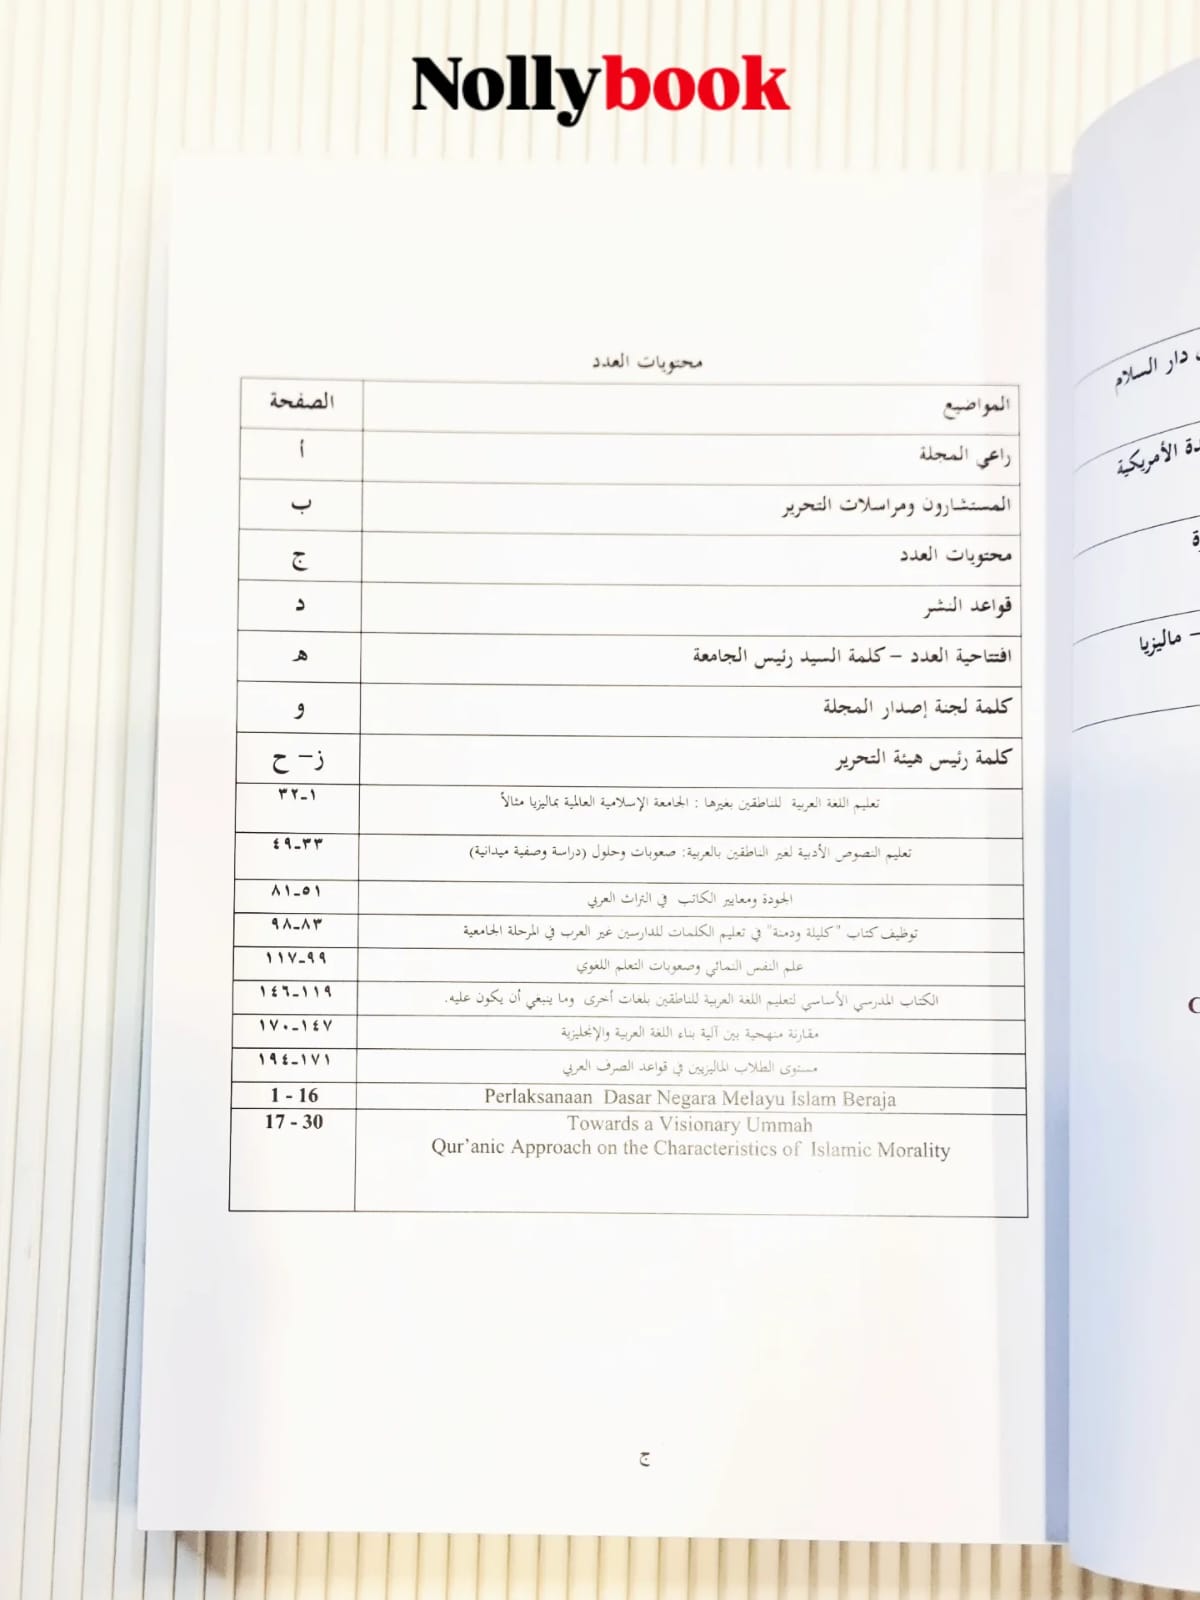 Nollybook
محتويات العدد
المواضيع الصفحة
راعي المجلة أ
المستشارون ومراسلات التحرير ب
محتويات العدد ج
قواعد النشر د
افتتاحية العدد – كلمة السيد رئيس الجامعة هـ
كلمة لجنة إصدار المجلة و
كلمة رئيس هيئة التحرير ز– ح
تعليم اللغة العربية للناطقين بغيرها : الجامعة الإسلامية العالمية بماليزيا مثالاً ١-٣٢
تعليم النصوص الأدبية لغير الناطقين بالعربية: صعوبات وحلول (دراسة وصفية ميدانية) ٣٣-٤٩
الجودة ومعايير الكاتب في التراث العربي ٥١-٨١
توظيف كتاب "كليلة ودمنة" في تعليم الكلمات للدارسين غير العرب في المرحلة الجامعية ٨٣-٩٨
علم النفس النمائي وصعوبات التعلم اللغوي ٩٩-١١٧
الكتاب المدرسي الأساسي لتعليم اللغة العربية للناطقين بلغات أخرى وما ينبغي أن يكون عليه. ١١٩-١٤٦
مقارنة منهجية بين آلية بناء اللغة العربية والإنجليزية ١٤٧-١٧٠
مستوى الطلاب الماليزيين في قواعد الصرف العربي ١٧١-١٩٤
1 - 16 Perlaksanaan Dasar Negara Melayu Islam Beraja
17 - 30 Towards a Visionary Ummah
Qur'anic Approach on the Characteristics of Islamic Morality
ج
دار السلام
الأمريكية
– ماليزيا